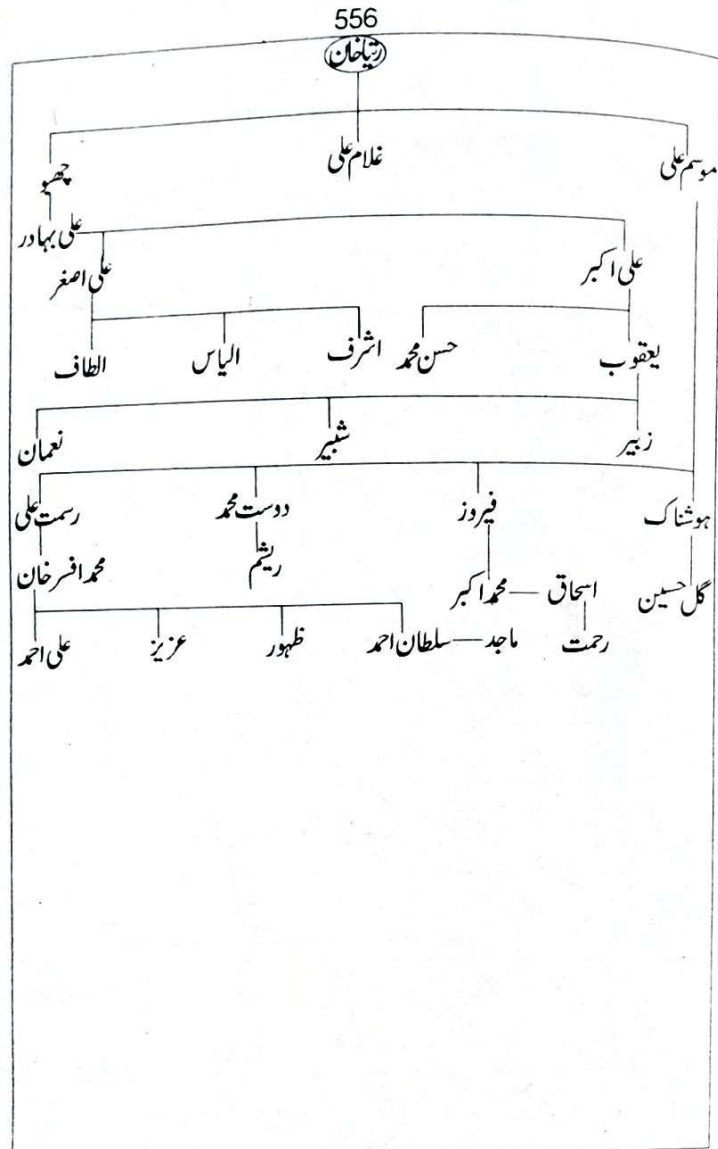 556
رتیاخان
موسم علی غلام علی چھبو
علی بہادر
علی اکبر علی اصغر
یعقوب حسن محمد اشرف الیاس الطاف
زبیر شبیر نعمان
ہوشناک فیروز دوست محمد رسمت علی
گل حسین اسحاق محمد اکبر ریشم محمد افسر خان
رحمت ماجد سلطان احمد ظہور عزیز علی احمد